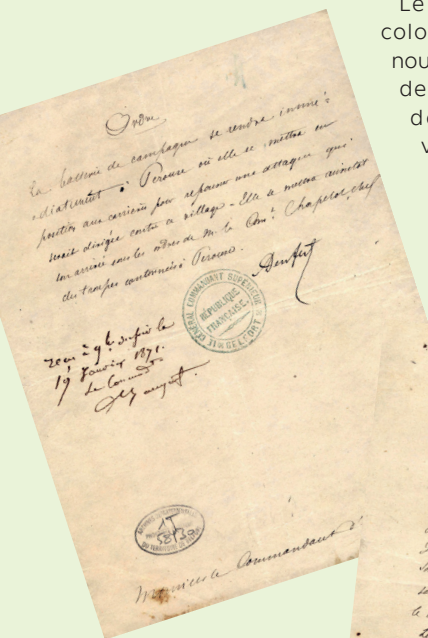 Le
colo
nou
de
de
v
Ordre.
La batterie de campagne se rendra immé-
diatement à Perouse où elle se mettra en
position aux carrières pour repousser une attaque qui
serait dirigée contre ce village - Elle se mettra aussitôt
son arrivée sous les ordres de M. le Comt. Chapelot, chef
des troupes cantonnées à Perouse.
Denfert
GÉNÉRAL COMMANDANT SUPÉRIEUR
RÉPUBLIQUE
FRANÇAISE.
BELFORT
reçu à 9h du soir le
19 Janvier 1871.
Le Command
1J
58/33
DU TERRITOIRE DE
Monsieur le Commandant